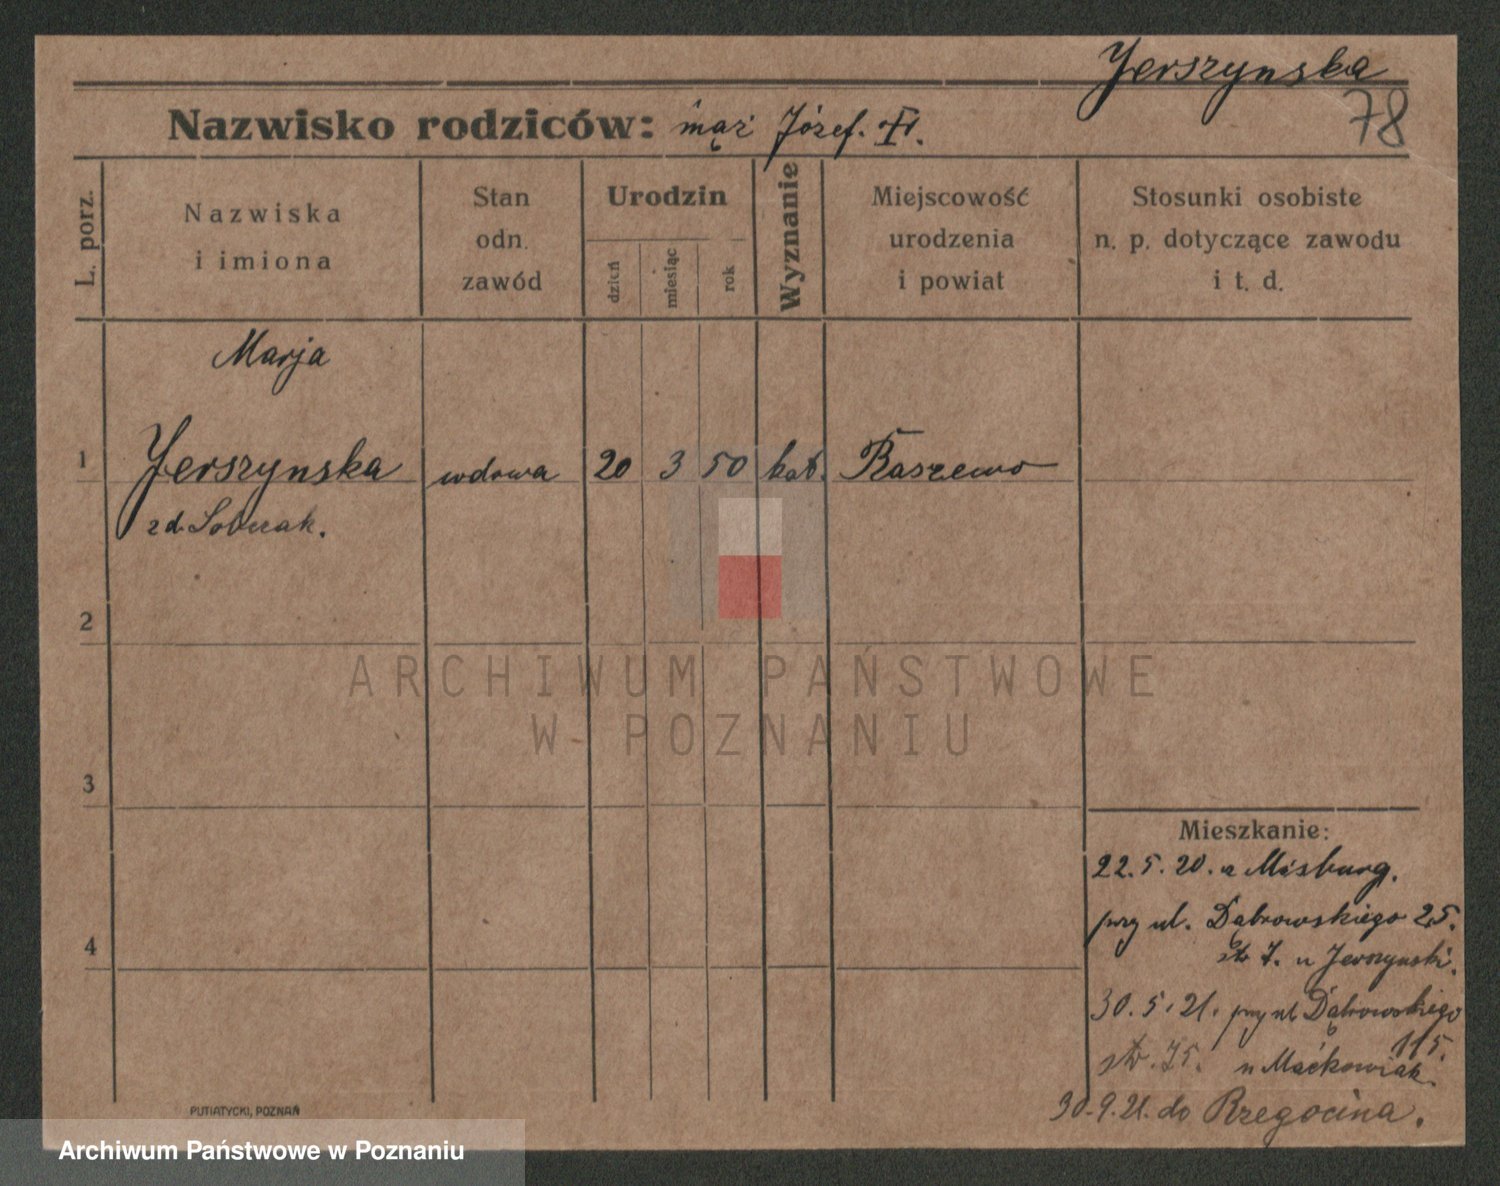 Jerszynska
78
Nazwisko rodziców: mąż Józef. †.
L. porz.
Nazwiska
i imiona
Stan
odn.
zawód
Urodzin
dzień
miesiąc
rok
Wyznanie
Miejscowość
urodzenia
i powiat
Stosunki osobiste
n. p. dotyczące zawodu
i t. d.
Marja
1 Jerszynska wdowa 20 3 50 kat. Raszewo
zd. Sobczak.
2
3
4
ARCHIWUM PAŃSTWOWE
W POZNANIU
Mieszkanie:
22. 5. 20. z Misburg.
przy ul. Dąbrowskiego 25.
u Jerszynski.
30. 5. 21. przy ul. Dąbrowskiego
115.
u Maćkowiak.
30. 9. 21. do Rzegocina.
PUTIATYCKI, POZNAŃ
Archiwum Państwowe w Poznaniu